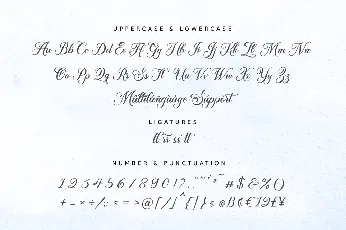 UPPERCASE & LOWERCASE
Aa Bb Cc Dd Ee Ff Gg Hh Ii Jj Kk Ll Mm Nn
Oo Pp Qq Rr Ss Tt Uu Vv Ww Xx Yy Zz
Multilanguage Support
LIGATURES
tt rr ss ll
NUMBER & PUNCTUATION
1 2 3 4 5 6 7 8 9 0 ! ? # $ & % ( )
+ - × ÷ / : < = > @ [ / ] ^ { | }